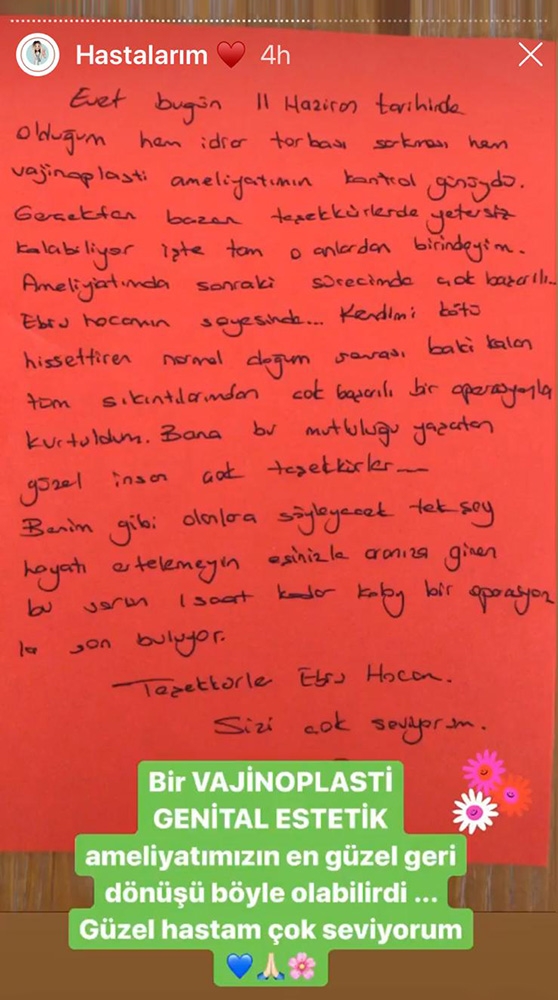 Hastalarım ❤️ 4h
Evet bugün 11 Haziran tarihinde
olduğum hem idrar torbası sarkması hem
vajinaplasti ameliyatımın kontrol günüydü.
Gerçekten bazen teşekkürlerde yetersiz
kalabiliyor işte tam o anlardan birindeyim.
Ameliyatımda sonraki sürecimde çok başarılı...
Ebru hocamın sayesinde... Kendimi kötü
hissettiren normal doğum sonrası baki kalan
tüm sıkıntılarımdan çok başarılı bir operasyonla
kurtuldum. Bana bu mutluluğu yaşatan
güzel insan çok teşekkürler
Benim gibi olanlara söyleyecek tek şey
hayatı ertelemeyin eşinizle aranıza giren
bu sorun 1 saat kadar kolay bir operasyon
la son buluyor.
Teşekkürle Ebru Hocam.
Sizi çok seviyorum.
Bir VAJİNOPLASTİ
GENİTAL ESTETİK
ameliyatımızın en güzel geri
dönüşü böyle olabilirdi ...
Güzel hastam çok seviyorum
💙🙏🏻🌸